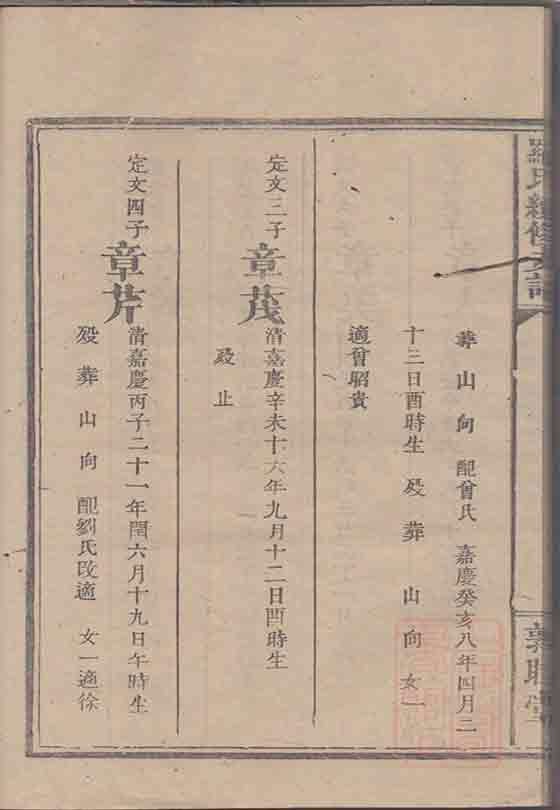 羅氏續修支譜
葬 山 向 配曾氏 嘉慶癸亥八年四月二
十三日酉時生 歿 葬 山 向 女一
適曾昭貴
定文三子 章茂 清嘉慶辛未十六年九月十二日酉時生
歿 止
定文四子 章芹 清嘉慶丙子二十一年閏六月十九日午時生
歿 葬 山 向 配劉氏改適 女一適徐
睦堂